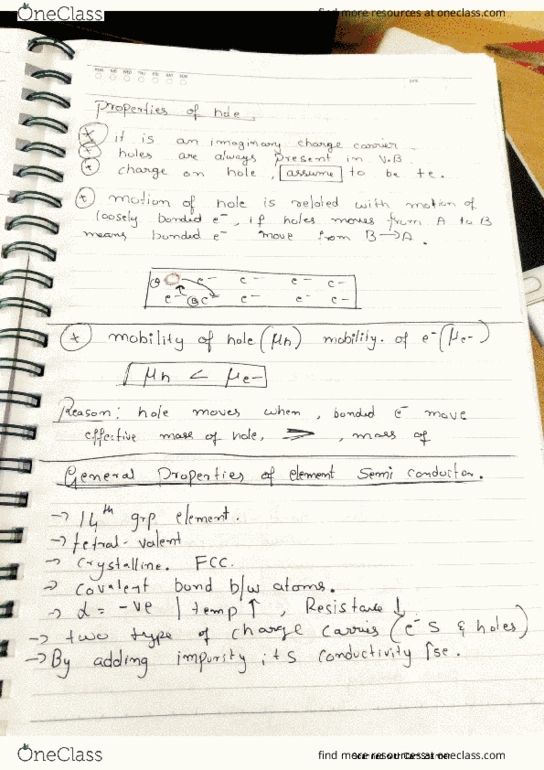 OneClass
find more resources at oneclass.com
Properties of hole.
it is an imaginary charge carrier
holes are always present in V.B.
charge on hole, assume to be +e.
motion of hole is related with motion of
loosely bonded e⁻, if holes moves from A to B
means bonded e⁻ move from B→A.
e⁻ e⁻ e⁻ e⁻
e⁻ e⁻ e⁻ e⁻ e⁻
mobility of hole (μh) mobility. of e⁻ (μe-)
μh < μe-
Reason: hole moves when, bonded e⁻ move
effective mass of hole, >, mass of
General Properties of element Semi conductor.
→ 14th grp element.
→ tetral-valent
→ crystalline. FCC.
→ covalent bond b/w atoms.
→ α = -ve | temp ↑, Resistance ↓
→ two type of charge carries (e⁻s & holes)
→ By adding impurity its conductivity ↑se.
OneClass
find more resources at oneclass.com